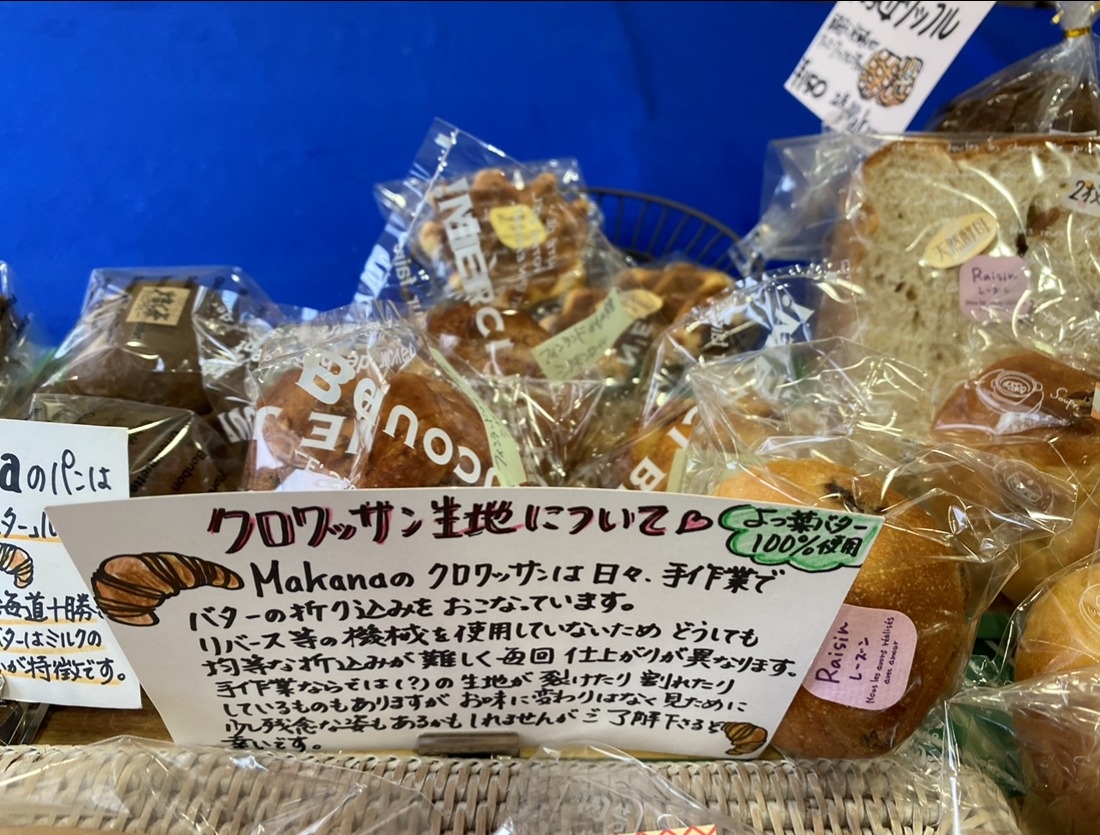 ワッフル
¥180
2枚
天然酵母
Raisin
レーズン
MERCI
Beaucoup
aのパンは
海道十勝
ターはミルクの
が特徴です。
クロワッサン生地について
よつ葉バター
100%使用
Makanaの クロワッサンは 日々、手作業で
バターの折り込みを おこなっています。
リバース等の機械を使用していないため どうしても
均等な折込みが難しく毎回 仕上がりが異なります。
手作業ならでは(?)の生地が 裂けたり 割れたり
しているものもありますが お味に変わりはなく 見ために
少し残念な姿もあるかもしれませんが ご了解下さると
幸いです。
Raisin
レーズン
Nous les avons réalisés
avec amour